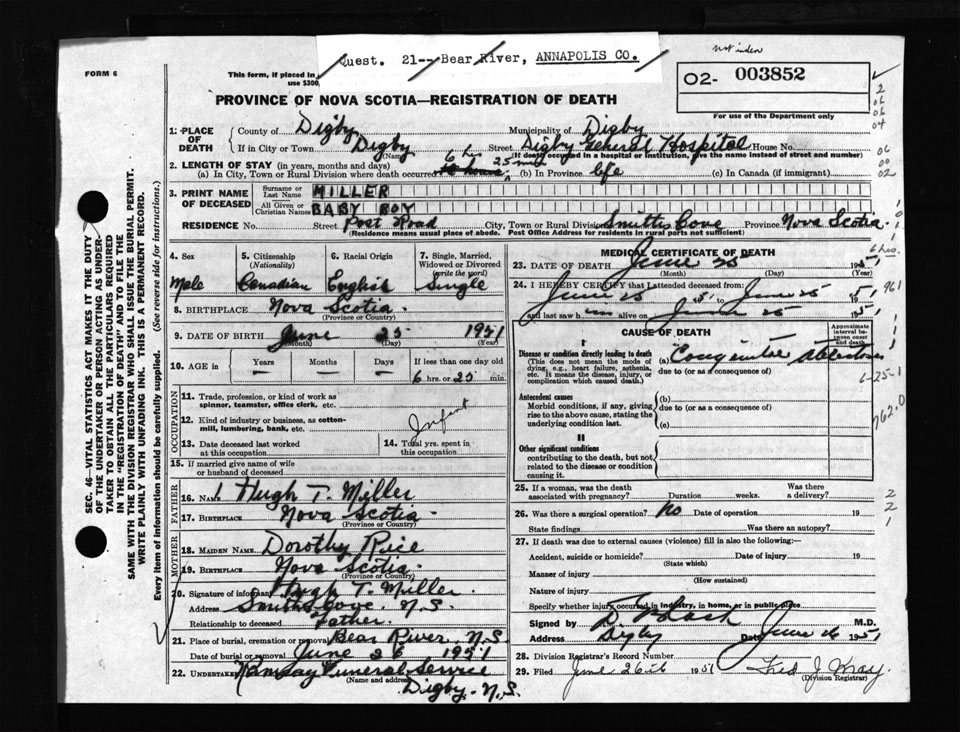 Quest. 21-- Bear River, ANNAPOLIS CO.
not index
FORM 6
This form, if placed in
use $300,
02- 003852
For use of the Department only
PROVINCE OF NOVA SCOTIA—REGISTRATION OF DEATH
1. PLACE OF DEATH { County of Digby Municipality of Digby
If in City or Town Digby (Name) Street Digby General Hospital House No.
(If death occurred in a hospital or institution, give the name instead of street and number)
2. LENGTH OF STAY (in years, months and days) 6 hrs 25 min
(a) In City, Town or Rural Division where death occurred (b) In Province life (c) In Canada (if immigrant)
3. PRINT NAME OF DECEASED { Surname or Last Name MILLER
All Given or Christian Names BABY BOY
RESIDENCE No. Street Post Road City, Town or Rural Division Smiths Cove Province Nova Scotia
(Residence means usual place of abode. Post Office Address for residents in rural parts not sufficient)
4. Sex Male
5. Citizenship (Nationality) Canadian
6. Racial Origin English
7. Single, Married, Widowed or Divorced (write the word) Single
8. BIRTHPLACE Nova Scotia
(Province or Country)
9. DATE OF BIRTH June 25 1951
(Month) (Day) (Year)
10. AGE in { Years — Months — Days — If less than one day old
6 hrs. or 25 min.
OCCUPATION
11. Trade, profession, or kind of work as spinner, teamster, office clerk, etc.
12. Kind of industry or business, as cotton-mill, lumbering, bank, etc. Infant
13. Date deceased last worked at this occupation
14. Total yrs. spent in this occupation
15. If married give name of wife or husband of deceased
FATHER
16. NAME Hugh T. Miller
17. BIRTHPLACE Nova Scotia
(Province or Country)
MOTHER
18. MAIDEN NAME Dorothy Rice
19. BIRTHPLACE Nova Scotia
(Province or Country)
20. Signature of informant Hugh T. Miller
Address Smiths Cove, N.S.
Relationship to deceased Father.
21. Place of burial, cremation or removal Bear River, N.S.
Date of burial or removal June 26 1951
22. UNDERTAKER Ramsay Funeral Service
(Name and address)
Digby, N.S.
MEDICAL CERTIFICATE OF DEATH
23. DATE OF DEATH June 25 1951
(Month) (Day) (Year)
6 hrs.
24. I HEREBY CERTIFY that I attended deceased from:
June 25 51 to June 25 51
961
and last saw him alive on June 25 1951
CAUSE OF DEATH
Approximate interval between onset and death
I
Disease or condition directly leading to death
(This does not mean the mode of dying, e.g., heart failure, asthenia, etc. It means the disease, injury, or complication which caused death.)
(a)
due to (or as a consequence of)
6-25-1
762.0
Antecedent causes
Morbid conditions, if any, giving rise to the above cause, stating the underlying condition last.
(b)
due to (or as a consequence of)
(c)
II
Other significant conditions
contributing to the death, but not related to the disease or condition causing it.
25. If a woman, was the death associated with pregnancy? Duration weeks. Was there a delivery?
26. Was there a surgical operation? No Date of operation 19
State findings Was there an autopsy?
27. If death was due to external causes (violence) fill in also the following:—
Accident, suicide or homicide? Date of injury 19
(State which)
Manner of injury
(How sustained)
Nature of injury
Specify whether injury occurred in industry, in home, or in public place
Signed by M.D.
Address Digby Date June 26 1951
28. Division Registrar's Record Number
29. Filed June 26th 1951 Fred J. Wray
(Division Registrar)
SEC. 46—VITAL STATISTICS ACT MAKES IT THE DUTY OF THE UNDERTAKER OR PERSON ACTING AS UNDERTAKER TO OBTAIN ALL THE PARTICULARS REQUIRED IN THE "REGISTRATION OF DEATH" AND TO FILE THE SAME WITH THE DIVISION REGISTRAR WHO SHALL ISSUE THE BURIAL PERMIT.
WRITE PLAINLY WITH UNFADING INK. THIS IS A PERMANENT RECORD.
Every item of information should be carefully supplied. (See reverse side for instructions.)